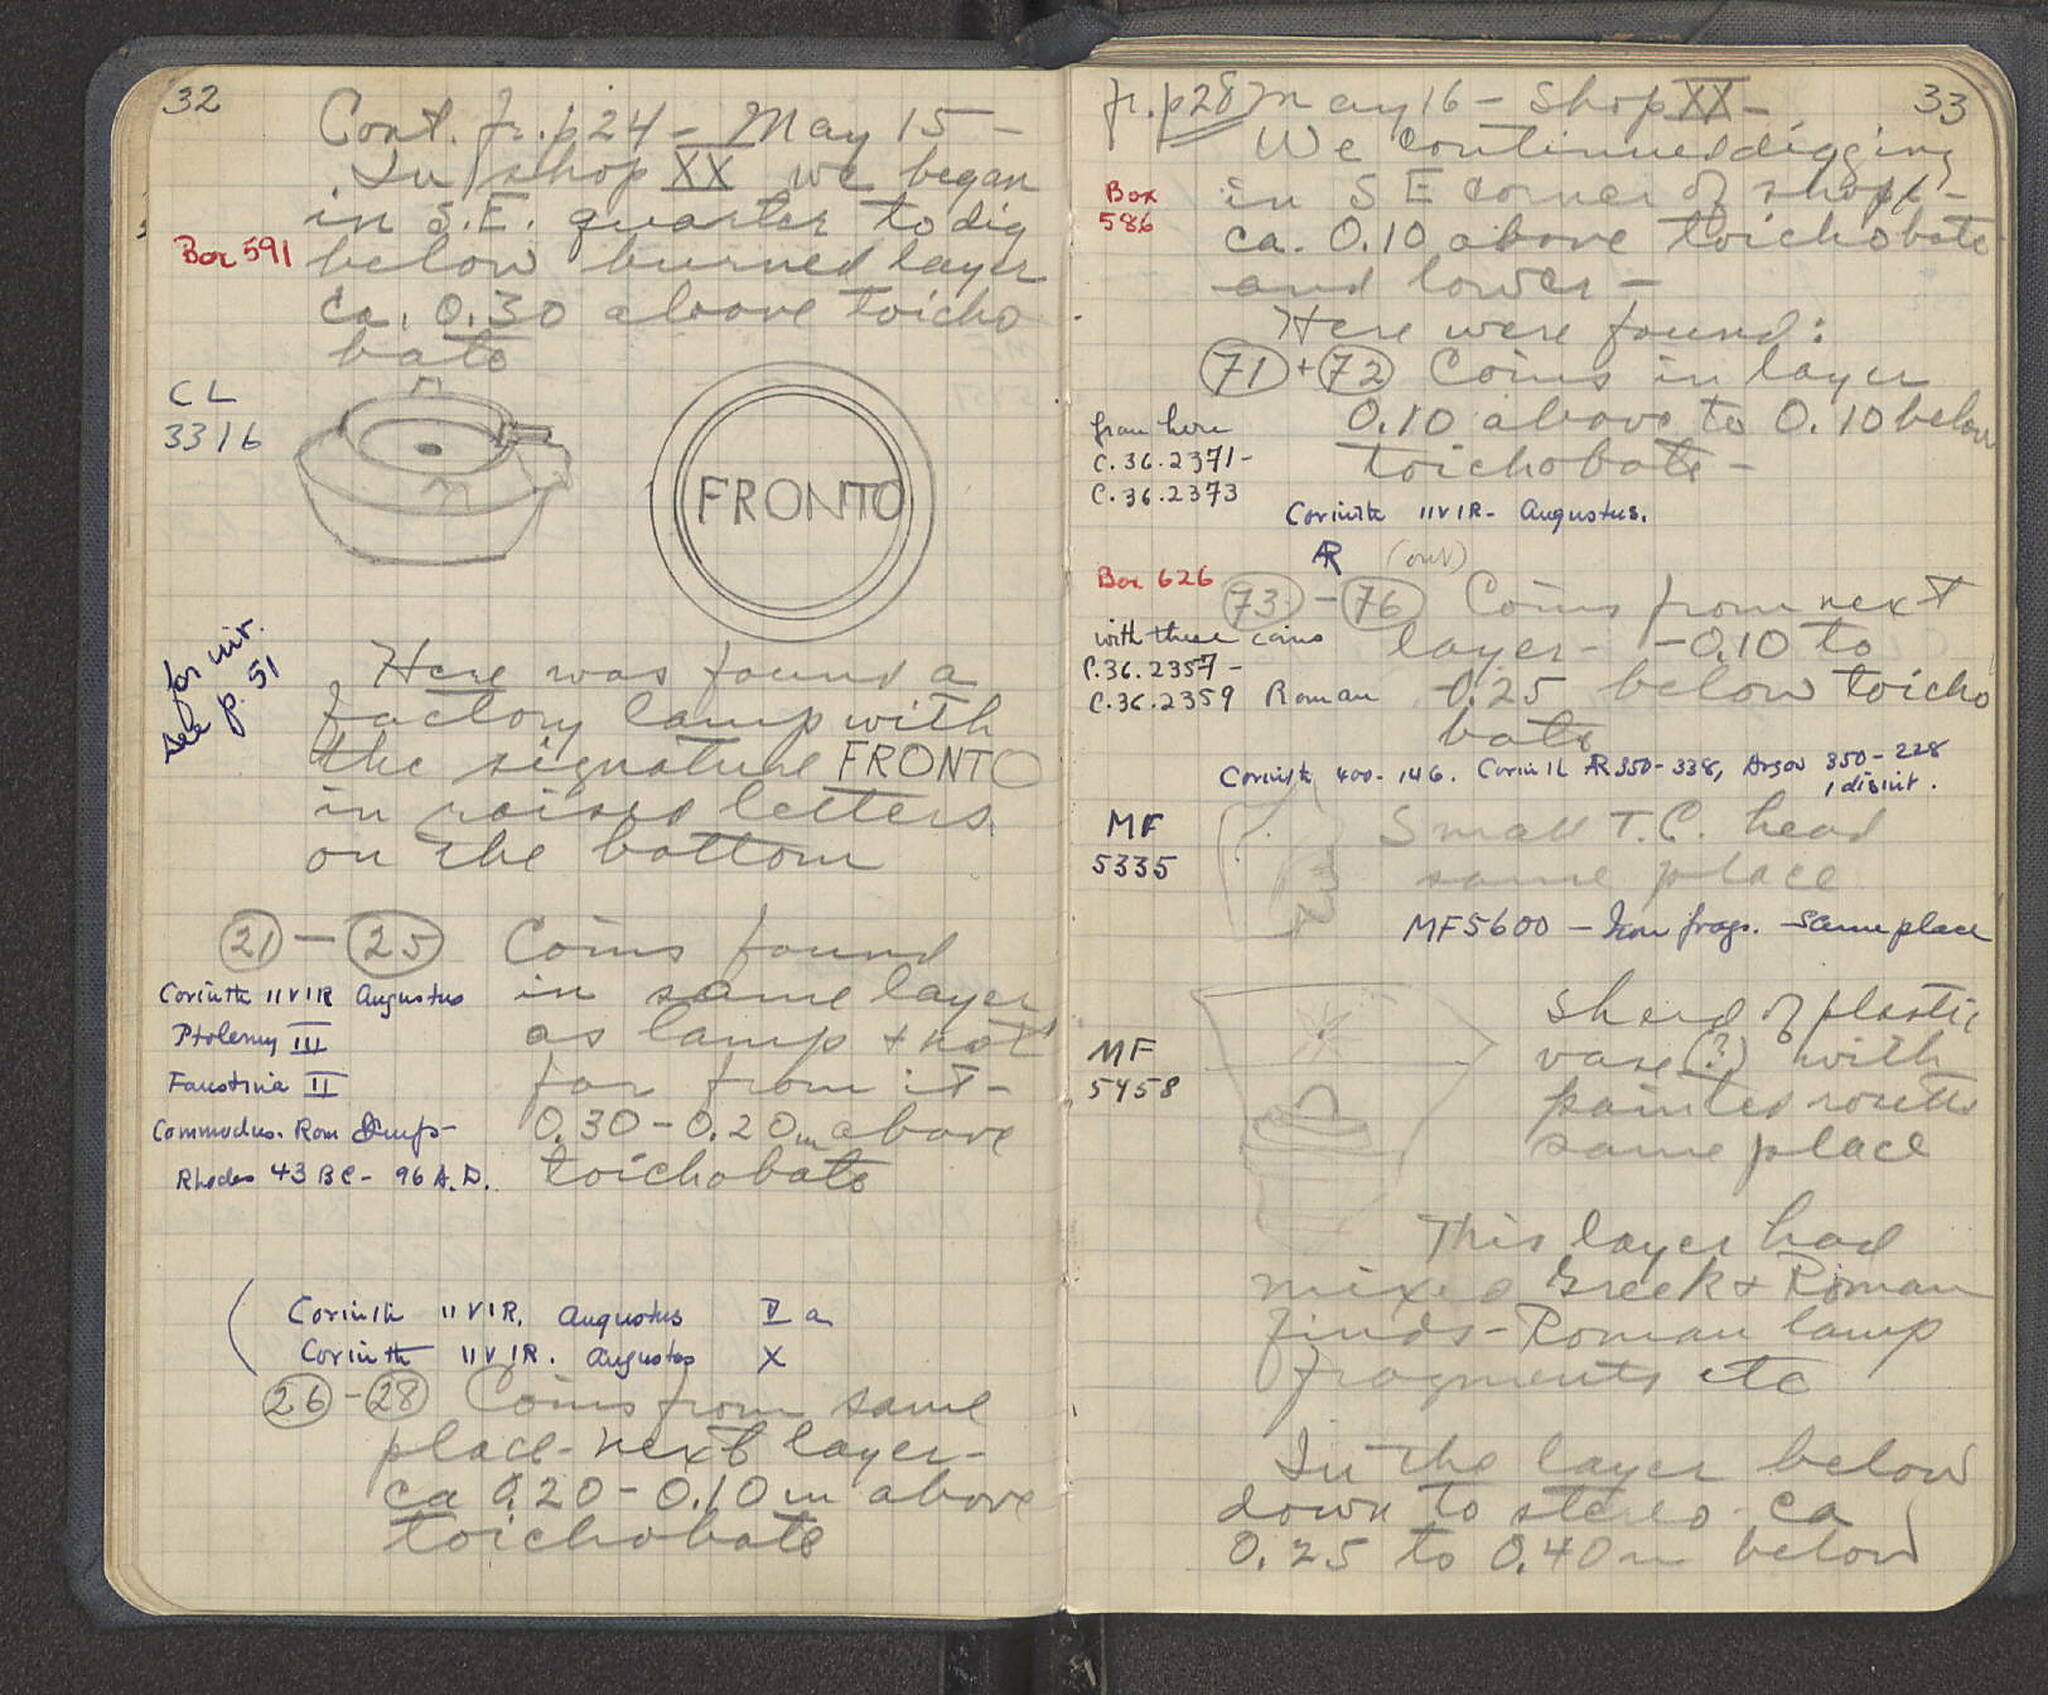 32
Cont. fr. p 24 - May 15 -
In shop XX we began
in S.E. quarter to dig
Box 591
below burned layer
ca. 0.30 above toicho
bate
CL
3316
FRONTO
for inv.
see p. 51
Here was found a
factory lamp with
the signature FRONTO
in raised letters
on the bottom
21 - 25 Coins found
in same layer
as lamp + not
far from it -
0.30 - 0.20 m above
toichobate
Corinth IIVIR Augustus
Ptolemy III
Faustina II
Commodus. Rom
Rhodes 43 BC - 96 A.D.
Corinth IIVIR. Augustus V a
Corinth IIVIR. Augustus X
26 - 28 Coins from same
place - next layer -
ca 0.20 - 0.10 m above
toichobate
fr. p 28 May 16 - Shop XX - 33
We continued digging
Box
586
in S E corner of shop -
ca. 0.10 above toichobate
and lower -
Here were found:
71 + 72 Coins in layer
0.10 above to 0.10 below
toichobate -
from here
C.36.2371-
C.36.2373
Corinth IIVIR - Augustus.
AR (out)
Box 626
73 - 76 Coins from next
layer - -0.10 to
-0.25 below toicho
bate
with these coins
C.36.2357-
C.36.2359 Roman
Corinth 400-146. Corinth AR 350-338, Argos 350-228
1 disint.
MF
5335
Small T.C. head
same place
MF5600 - Iron frags. - Same place
MF
5458
Sherd of plastic
vase (?) with
painted rosette
same place
This layer had
mixed Greek + Roman
finds - Roman lamp
fragments etc
In the layer below
down to stereo - ca
0.25 to 0.40 m below